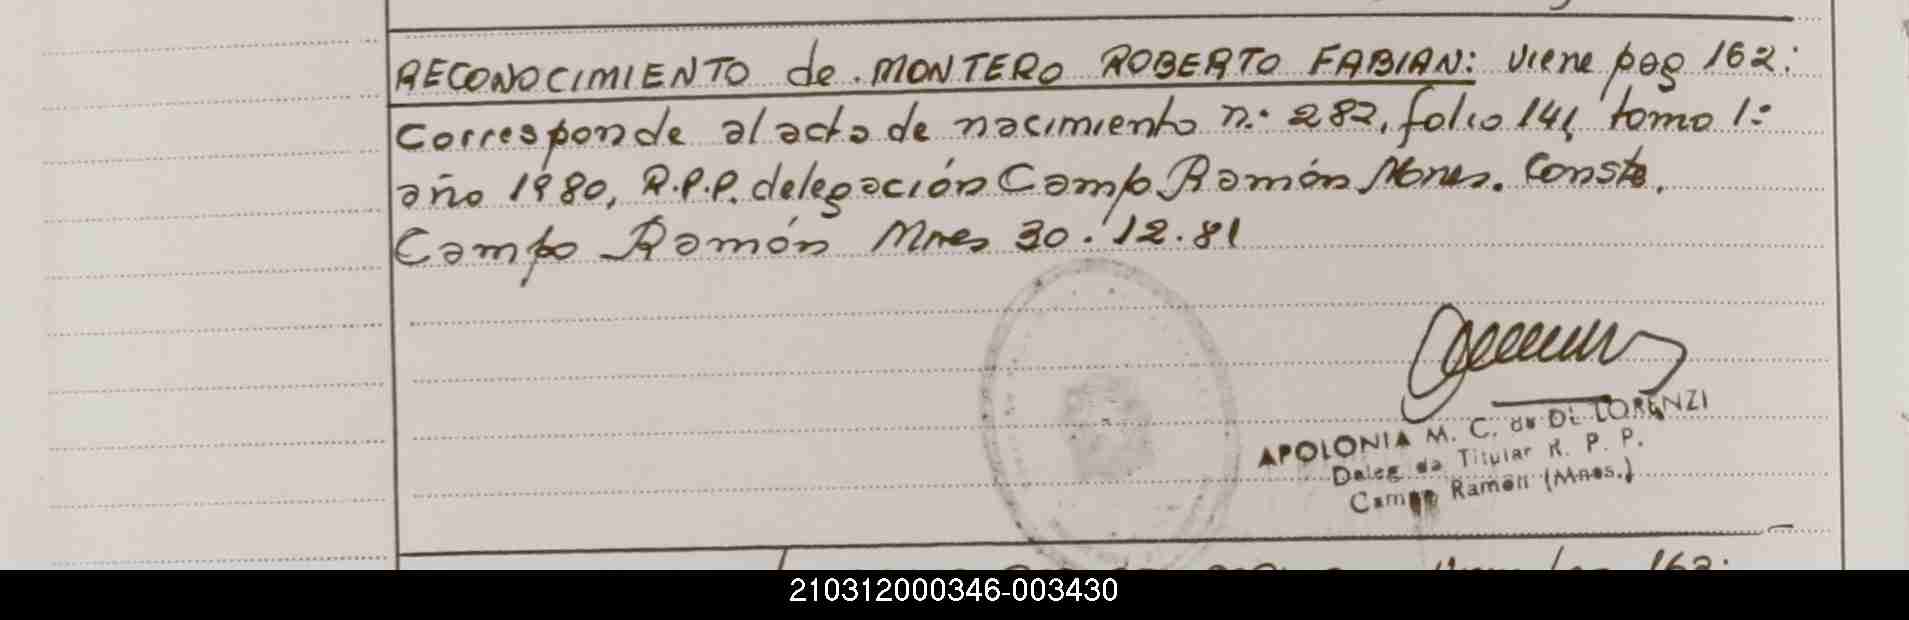 RECONOCIMIENTO de MONTERO ROBERTO FABIAN: viene pag 162:
Corresponde al acta de nacimiento n.º 282, folio 141, tomo 1º
año 1980, R.P.P. delegación Campo Ramón Mnes. Conste.
Campo Ramón Mnes 30.12.81
APOLONIA M. C. de DE LORENZI
Deleg da Titular R. P. P.
Campo Ramón (Mnes.)
210312000346-003430